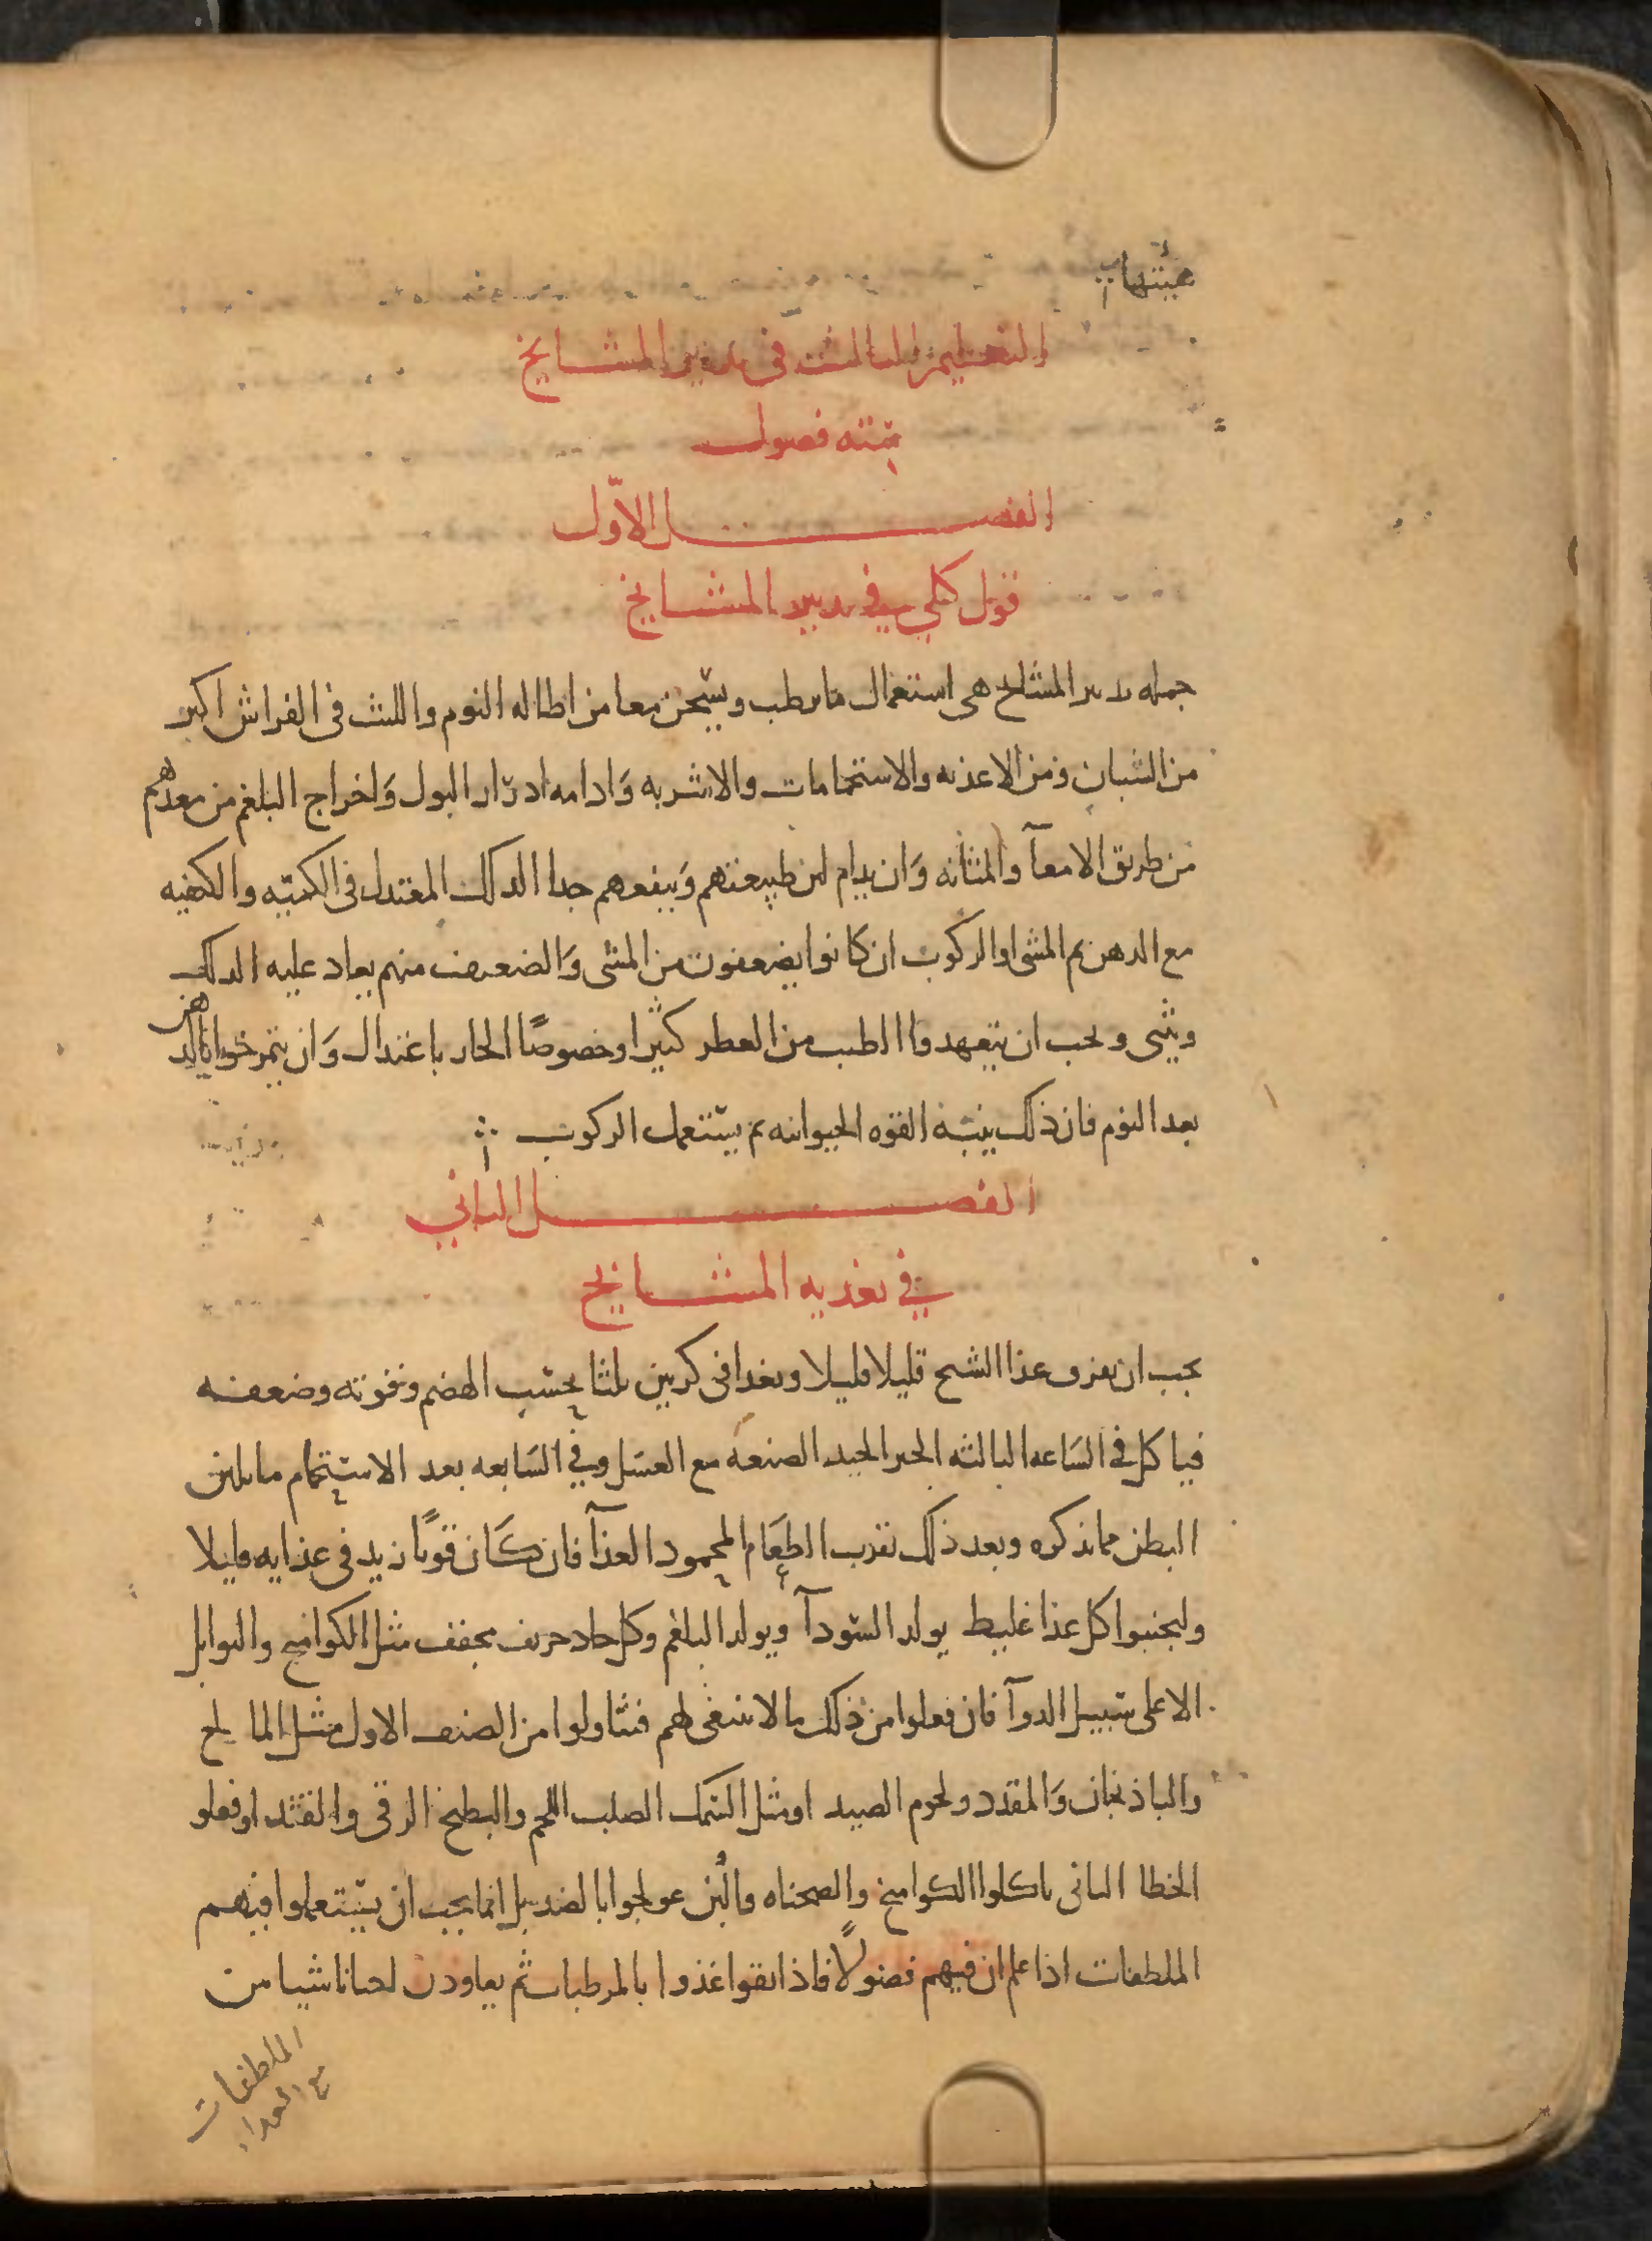 هيئتها
التعليم الثالث في تدبير المشايخ
ستة فصول
الفصل الاوّل
قول كلي في تدبير المشايخ
جمله تدبير المشايخ هى استعمال ما يرطب ويسخن معا من اطاله النوم واللبث فى الفراش اكثر
من الشبان ومن الاغذيه والاستحمامات والاشربه وَادامه ادرار البول وَاخراج البلغم من معدهم
من طريق الامعآ والمثانه وَان يدام لين طبيعتهم وَينفعهم جدا الدلك المعتدل فى الكميّه والكيفيه
مع الدهن ثم المشى او الركوب ان كانوا يضعفون من المشى وَالضعيف منهم يعاد عليه الدلك
ويثنى ويجب ان يتعهدوا الطيب من العطر كثيرا وخصوصًا الحار باعتدال وَان يتمرخوا بالدهن
بعد النوم فان ذلك ينبّه القوه الحيوانيه ثم يستعمل الركوب
الفصل الثاني
في تغذيه المشايخ
يجب ان يفرق غذا الشيخ قليلا قليلا ويغدا فى كرتين ثلثا بحسب الهضم وقوته وضعفه
فياكل في السَاعه الثالثه الخبز الجيد الصنعه مع العسَل وفي السَابعه بعد الاستحمام ما يلين
البطن مما نذكره وبعد ذلك نقرب الطعَام المحمود الغذآ فان كَان قويًا زيد فى غذايه قليلا
وليجنبوا كل غذا غليظ يولد السّودآ ويولد البلغم وكل حاد حريف مجفف مثل الكواميخ والتوابل
الا على سَبيل الدوآ فان فعلوا من ذلك ما لا ينبغى لهم فتناولوا من الصنف الاول مثل المالح
والباذنجان وَالمقدد ولحوم الصيد او مثل السَمك الصلب اللحم والبطيخ الرقى والقثد او فعلو
الخطا الثانى باكلوا الكواميخ والصحناه واللّبن عولجوا بالضد بل انما يجب ان يستعملوا فيهم
الملطفات اذا علم ان فيهم فضولًا فاذا نقوا غذوا بالمرطبات ثم يعاودن احيانا شيا من
الملطفات